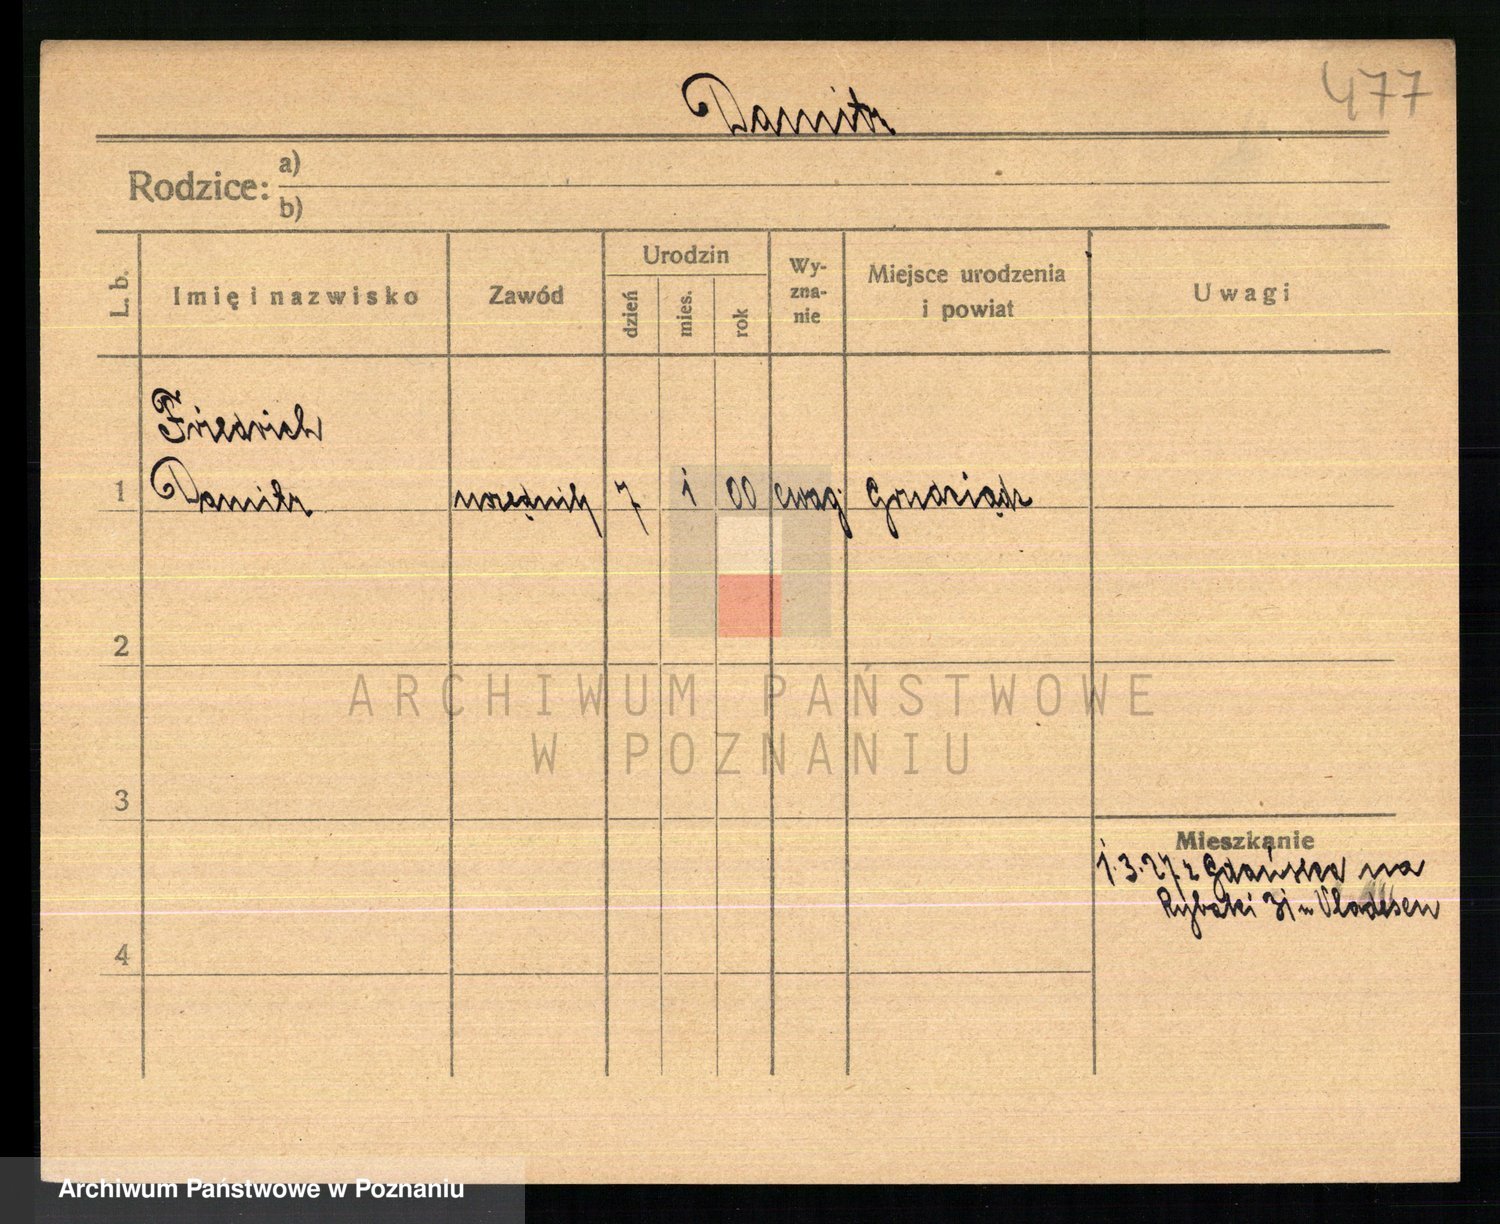 477
Damitz
Rodzice: a)
b)
L. b.
Imię i nazwisko
Zawód
Urodzin
dzień
mies.
rok
Wy-
zna-
nie
Miejsce urodzenia
i powiat
Uwagi
Friedrich
1 Damitz urzędnik 7 1 00 ewag. Grudziądz
2
ARCHIWUM PAŃSTWOWE
W POZNANIU
3
Mieszkanie
1.3.27 z Gdańska na
Rybaki 31 u
4
Archiwum Państwowe w Poznaniu